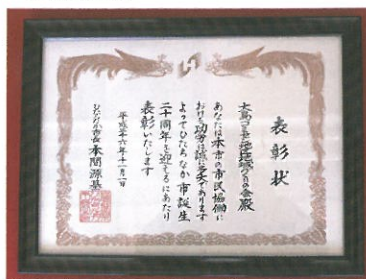 表彰状
大島コミュニティ地域づくりの会殿
あなたは本市の市民協働に
おける功労は誠に多大であります
よってひたちなか市誕生
二十周年を迎えるにあたり
表彰いたします
平成二十六年十一月一日
ひたちなか市長 本間源基